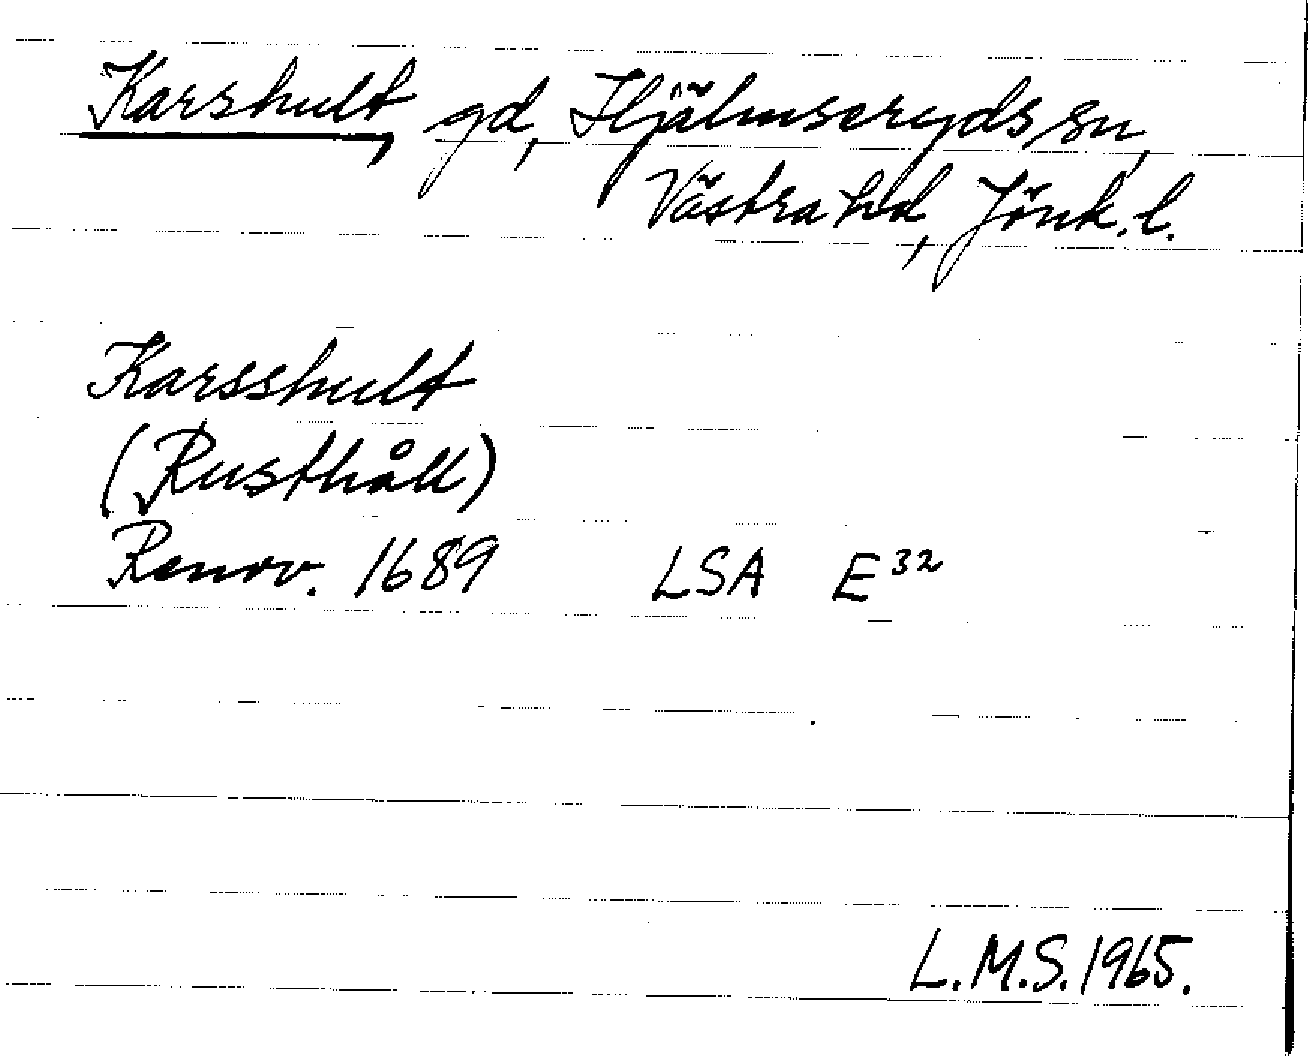 Karshult, gd, Hjälmseryds sn,
Västra hd, Jönk. l.
Karsshult
(Rusthåll)
Renov. 1689 LSA E³²
L.M.S. 1965.